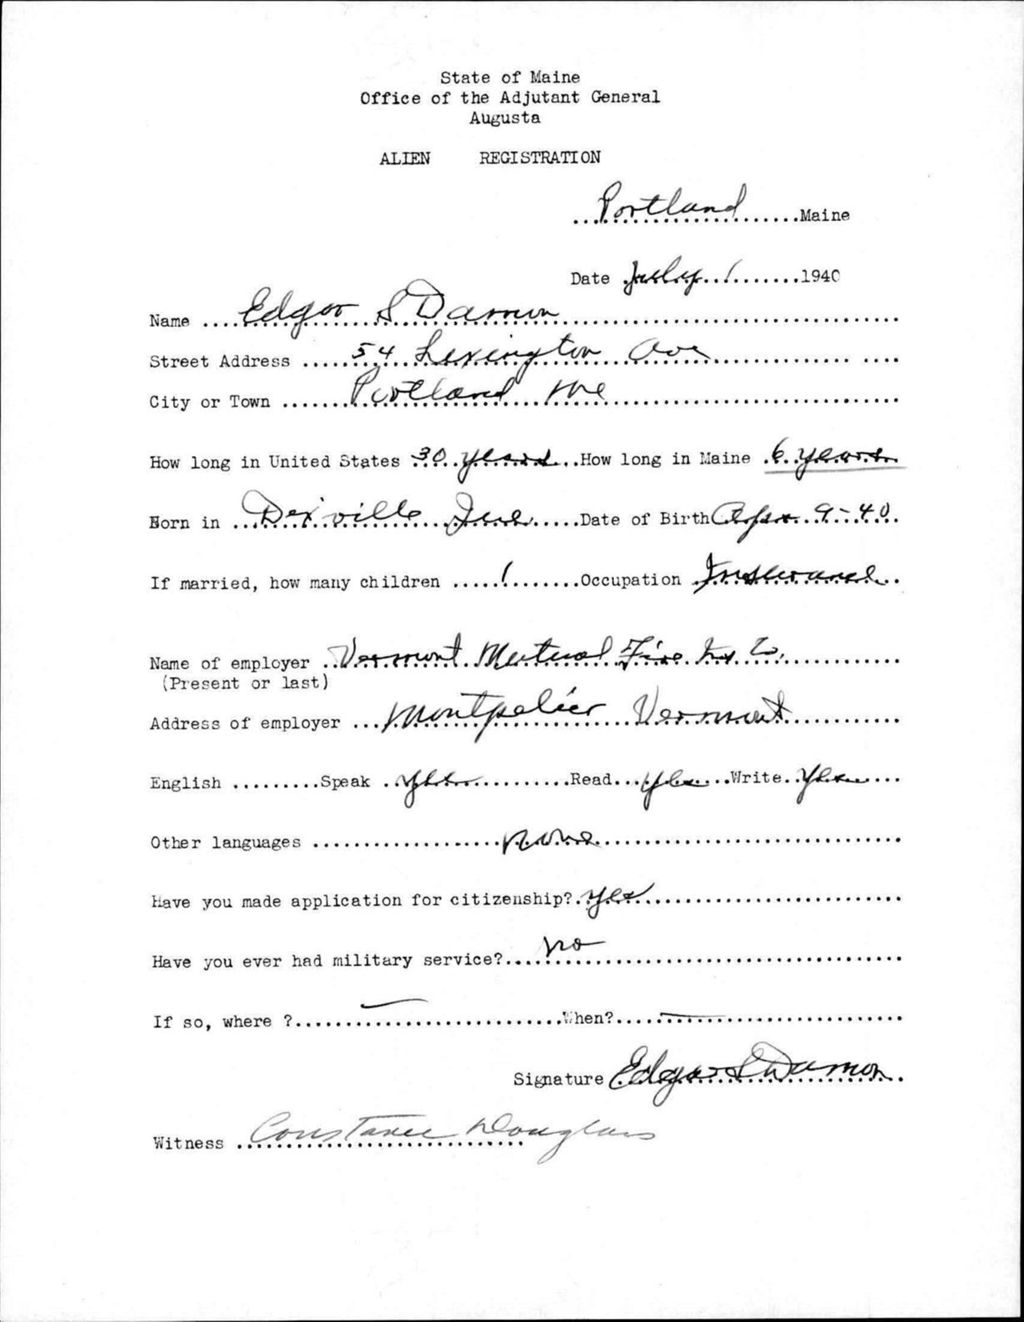 State of Maine
Office of the Adjutant General
Augusta
ALIEN REGISTRATION
Portland Maine
Date July 1 1940
Name Edgar S Damon
Street Address 54 Lexington Ave
City or Town Portland Me
How long in United States 30 years How long in Maine 6 years
Born in Dixville Que Date of Birth Apr 9-40
If married, how many children 1 Occupation Insurance
Name of employer Vermont Mutual Fire Ins Co.
(Present or last)
Address of employer Montpelier Vermont
English Speak yes Read yes Write yes
Other languages none
Have you made application for citizenship? yes
Have you ever had military service? no
If so, where ? — When? —
Signature Edgar S Damon
Witness Constance Douglass